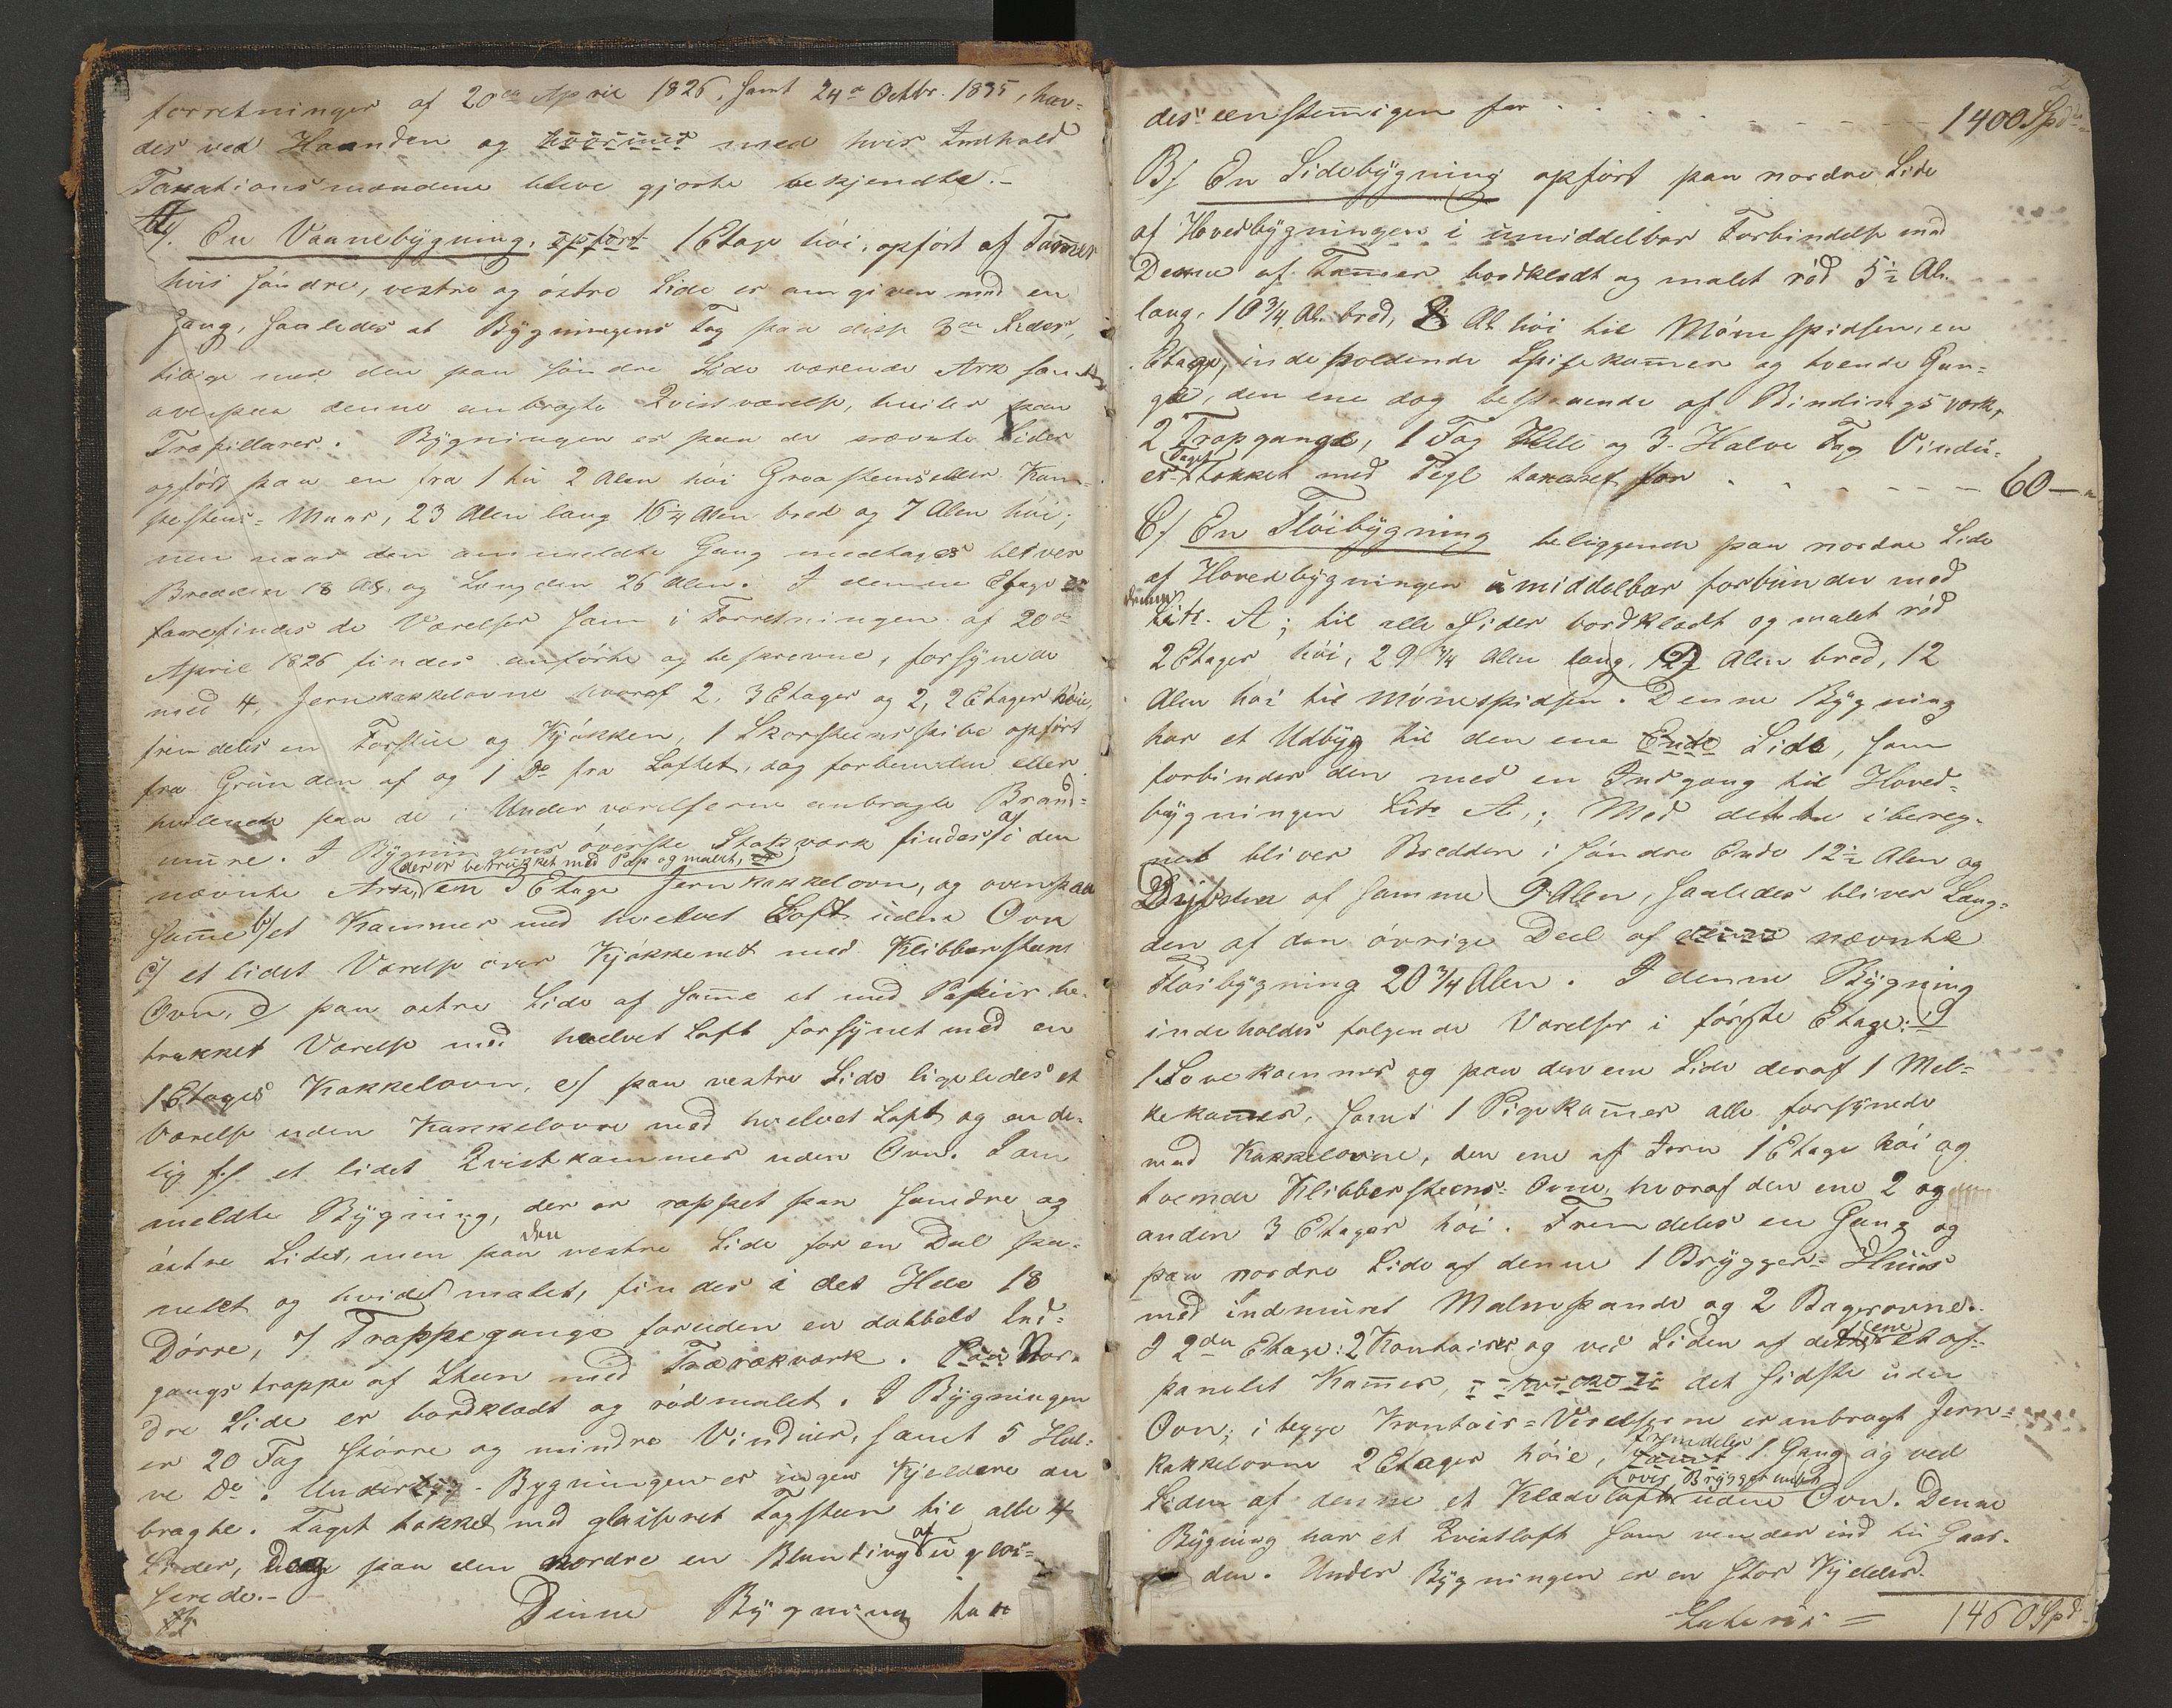 forretninger af 20de April 1826, samt 24de Octbr. 1835, hav-
des ved Haanden og hvormed med hvis Indhold
Taxationsmændene bleve gjorte bekjendte.-
A/. En Vaanebÿgning, opfört 1 Etage höi, opfört af Tam̄er
hvis söndre, vestre og östre Side er omgiven med en
Gang, saaledes at Bÿgningens Tag paa disse 3de Sider,
tillige med den paa söndre Side værende Ark samt
ovenpaa denne anbragte Qvistværelse, hviler paa
Træpillarer. Bÿgningen er paa de nævnte Sider
opfört paa en fra 1 til 2 Alen höi Graasteens eller Kam-
pesteens-Muur, 23 Alen lang 16¼ Alen bred og 7 Alen höi;
men naar den anmeldte Gang medtages bliver
Bredden 18 Al. og Længden 26 Alen. I denne Etage er
forefindes de Værelser som i Forretningen af 20de
April 1826 findes anförte og beskrevne, forsÿnede
med 4, Jernkakkelovne hvoraf 2, 3 Etager og 2, 2 Etager höie,
fremdeles en Forstue og Kjökken, 1 Skorsteenspibe opfört
fra Grunden af og 1 Do fra Loftet, dog forbunden eller
hvilende paa de i Underværelserne anbragte Brand-
mure. I Bÿgningens överste Stokværk findes a/ i den
der er betrukket med Pap og malet,
nævnte Ark, en 3 Etage Jernkakkelovn, og ovenpaa
sam̄e b/ et Kammer med hvelvet Loft uden Ovn
c/ et lidet Værelse over Kjökkenet med Klibbersteens
Ovn, d/ paa östre Side af sam̄e et med Papiir be-
trukket Værelse med hvelvet Loft forsÿnet med en
1 Etages Kakkelovn, e/ paa vestre Side ligeledes et
Værelse uden Kakkelovn med hvelvet Loft og ende-
lig f/ et lidet Qvistkammer uden Ovn. I an-
meldte Bÿgning, der er rappet paa söndre og
östre Sider, men paa den vestre Side for en Deel pa-
nelet og hvidmalet, findes i det Hele 18
Dörre, 7 Trappegange foruden en dobbelt Ind-
gangstrappe af Steen med Træ rækværk. Paa Nor-
dre Side er bordklædt og rödmalet. I Bÿgningen
er 20 Fag större og mindre Vinduer, samt 5 Hal-
ve Do. Underbÿg-Bygningen er ingen Kjeldere an-
bragte. Taget takket med glaseret Tagsteen til alle 4
Sider, dog paa den nordre en Blanding af uglas-
serede.-
Denne Bÿgning tax
des eenstem̄igen for . . . 1400 Spd
B/ En Sidebÿgning opfört paa nordre Side
af Hovedbÿgningen i umiddelbar Forbindelse med
Denne af Tam̄er bordklædt og malet röd 5½ Al.
lang, 10¾ Al. bred, 8 Al. höi til Mönespidsen, en
Etage, indeholdende Spisekam̄er og tvende Gan-
ge, den ene dog bestaaende af Bindingsværk,
2 Trapgange, 1 Fag Hele og 3 Halve Fag Vindu-
er Taget takket med Tegl taxeret for . . . 60 —
C/ En Flöibÿgning beliggende paa nordre Side
af Hovedbÿgningen umiddelbar forbunden med
denne
Litr. A; til alle Sider bordklædt og malet röd
2 Etager höi, 29¾ Alen lang, 12 Alen bred, 12
Alen höi til Mönespidsen. Denne Bÿgning
har et Udbÿg til den ene Ende Side, som
forbinder den med en Indgang til Hoved-
bÿgningen Litr A.; Med dette ibereg-
net bliver Bredden i söndre Ende 12½ Alen og
Dÿbden af samme 9 Alen, saaledes bliver Læng-
den af den övrige Deel af nævnte
Flöibÿgning 20¾ Alen. I denne Bÿgning
indeholdes fölgende Værelser i förste Etage:
1 Sovekammer og paa den ene Side deraf 1 Mel-
kekam̄er, samt 1 Pigekam̄er alle forsÿnede
med Kakkelovne, den ene af Jern 1 Etage höi og
tvende Klibbersteens-Ovne, hvoraf den ene 2 og den
anden 3 Etager höi. Fremdeles en Gang og
paa nordre Side af denne 1 Brÿgger-Huus
med indmuret Malmpande og 2 Bagerovne.
I 2den Etage: 2 Kontoirer og ved Siden af det ene et af-
panelet Kam̄er, det sidste uden
Ovn; i begge Kontoir-Værelserne er anbragt Jern-
kakkelovne 2 Etager höie, samt fremdeles 1 Gang og ved
over Brÿggerhuset
Siden af denne et Klædeloft uden Ovn. Denne
Bÿgning har et Qvistloft som vender ind til Gaar-
den. Under Bÿgningen er en stor Kjelder.
Lateris = 1460 Spd